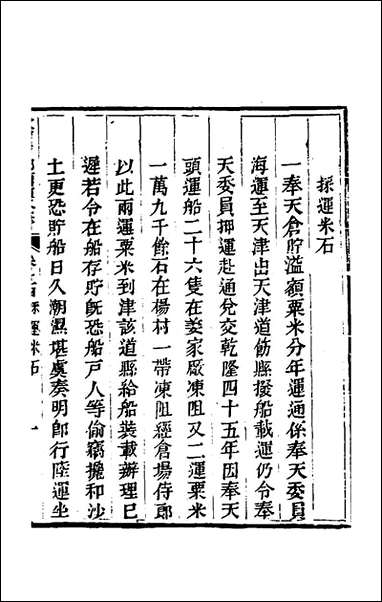 採運米石
一奉天倉貯溢額粟米分年運通係奉天委員
海運至天津出天津道飭縣撥船載運仍令奉
天委員押運赴通兌交乾隆四十五年因奉天
頭運船二十六隻在姜家厰凍阻又二運粟米
一萬九千餘石在楊村一帶凍阻經倉場侍郎
以此兩運粟米到津該道縣給船裝載辦理已
遲若令在船存貯既恐船戶人等偷竊攙和沙
土更恐貯船日久潮濕堪虞奏明郎行陸運坐
採運米石 一